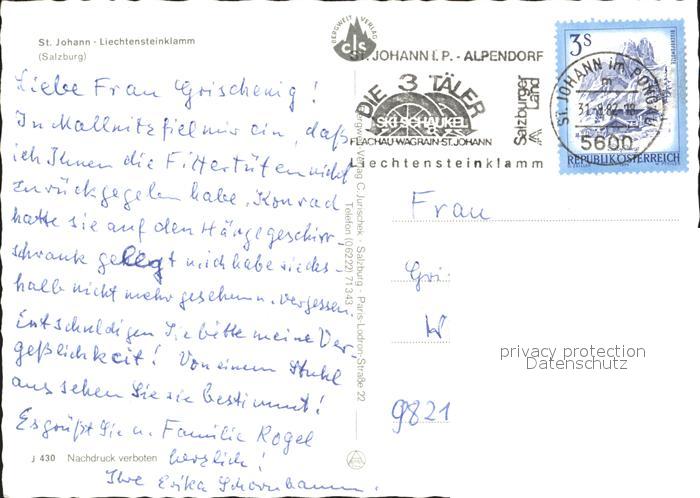 St. Johann - Liechtensteinklamm
(Salzburg)
Liebe Frau Grischenig!
In Mallnitz fiel mir ein, daß
ich Ihnen die Filtertüten nicht
zurückgegeben habe. Konrad
hatte sie auf den Hängegeschirr-
schrank gelegt u. ich habe sie des-
halb nicht mehr gesehen u. vergessen.
Entschuldigen Sie bitte meine Ver-
geßlichkeit! Von einem Stuhl
aus sehen Sie sie bestimmt!
Es grüßt Sie u. Familie Rogel
herzlich!
Ihre Erika
J 430 Nachdruck verboten
BERGWELT VERLAG
cJs
Bergwelt Verlag C. Jurischek - Salzburg - Paris-Lodron-Straße 22
Telefon (06222) 71343
ST. JOHANN I. P. - ALPENDORF
DIE 3 TÄLER
SKI-SCHAUKEL
FLACHAU-WAGRAIN-ST. JOHANN
Liechtensteinklamm
Salzburger
Land
3 S
BISCHOFSMÜTZE
REPUBLIK ÖSTERREICH
ST. JOHANN im PONGAU
m
31.-8.82-18
5600
Frau
Gri
W
9821
privacy protection
Datenschutz